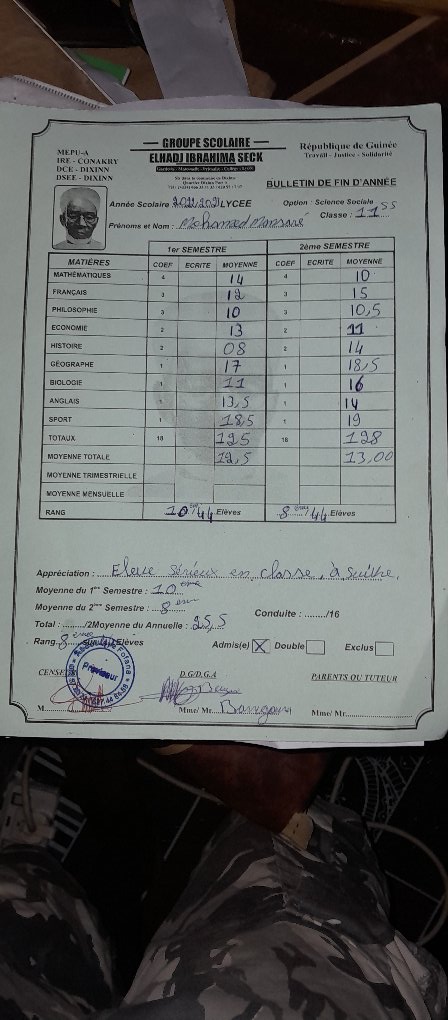 GROUPE SCOLAIRE
ELHADJ IBRAHIMA SECK
MEPU-A
IRE - CONAKRY
DCE - DIXINN
DSEE - DIXINN
République de Guinée
Travail - Justice - Solidarité
BULLETIN DE FIN D'ANNÉE
Année Scolaire LYCEE Option : Science Sociale
Prénoms et Nom : Mohamed Mansaré Classe : 11 SS
1er SEMESTRE 2ème SEMESTRE
MATIÈRES COEF ECRITE MOYENNE COEF ECRITE MOYENNE
MATHÉMATIQUES 4 14 4 10
FRANÇAIS 3 12 3 15
PHILOSOPHIE 3 10 3 10,5
ECONOMIE 2 13 2 11
HISTOIRE 2 08 2 14
GÉOGRAPHE 1 17 1 18,5
BIOLOGIE 1 11 1 16
ANGLAIS 1 13,5 1 14
SPORT 1 18,5 1 19
TOTAUX 18 125 18 128
MOYENNE TOTALE 12,5 13,00
MOYENNE TRIMESTRIELLE
MOYENNE MENSUELLE
RANG 10 ème/44 Elèves 8 ème/44 Elèves
Appréciation : Elève sérieux en classe, à suivre.
Moyenne du 1er Semestre : 10 ème
Moyenne du 2ème Semestre : 8 ème
Conduite : ......../16
Total : ......../2Moyenne du Annuelle : 25,5
Rang 8 ème Sur 44 Elèves Admis(e) X Double Exclus
CENSEUR D.G/D.G.A PARENTS OU TUTEUR
Proviseur
M Mme/ Mr. Mme/ Mr